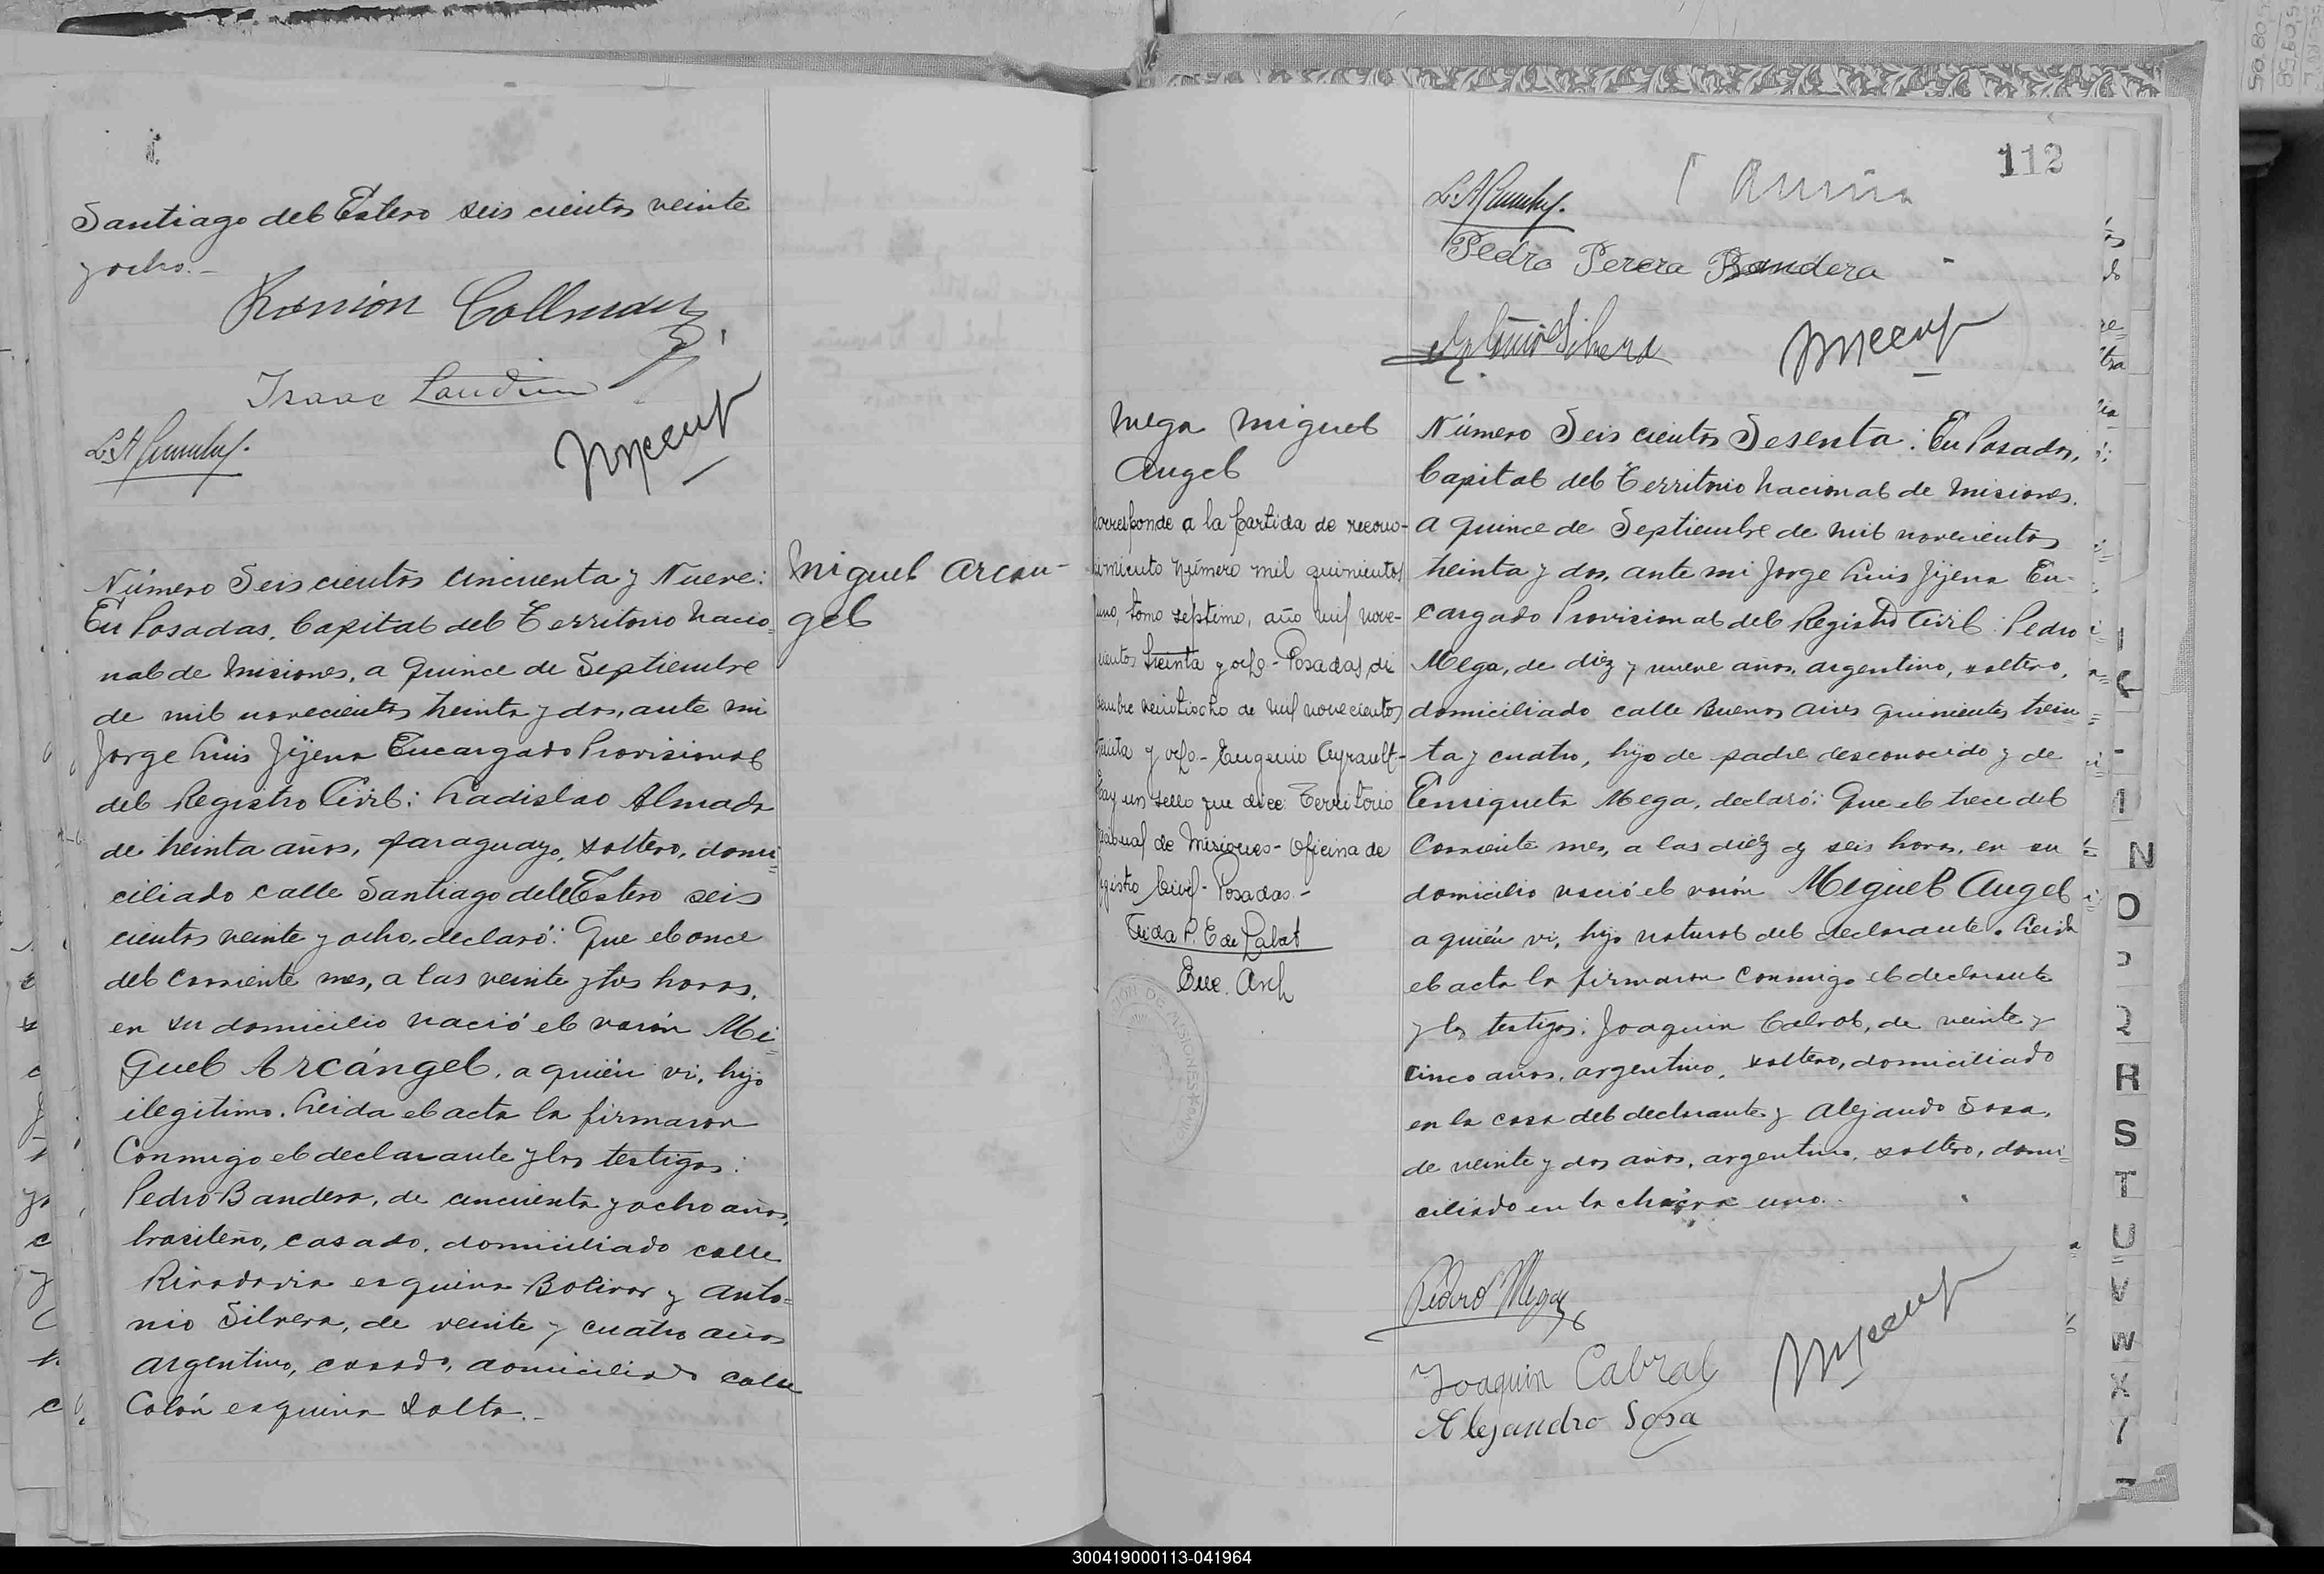 Santiago del Estero seis cientos veinte
y ocho.-
Ramón
Isaac
Número Seis cientos cincuenta y Nueve:
En Posadas, Capital del Territorio Nacio=
nal de Misiones, a quince de Septiembre
de mil novecientos treinta y dos, ante mi
Jorge Luis Jijena Encargado Provisional
del Registro Civil: Ladislao Almada
de treinta años, paraguayo, soltero, domi=
ciliado calle Santiago del Estero seis
cientos veinte y ocho, declaró: Que el once
del corriente mes, a las veinte y tres horas,
en su domicilio nació el varón Mi=
guel Arcángel, a quién vi, hijo
ilegitimo. Leida el acta la firmaron
Conmigo el declarante y los testigos:
Pedro Bandera, de cincuenta y ocho años,
brasileño, casado, domiciliado calle
Rivadavia esquina Bolivar y Anto=
nio Silvera, de veinte y cuatro años
argentino, casado, domiciliado calle
Colón esquina Salta.-
Miguel Arcan-
gel
112
Pedro Perera Bandera
Antonio Silvera
Mega Miguel
Angel
corresponde a la partida de recono-
cimiento número mil quinientos
uno, tomo séptimo, año mil nove-
cientos treinta y ocho - Posadas, di
ciembre veintiocho de mil novecientos
treinta y ocho - Eugenio Ayrault -
Hay un sello que dice: Territorio
Nacional de Misiones - Oficina de
Registro Civil - Posadas.-
Enc. Arch
Número Seis cientos Sesenta: En Posadas,
Capital del Territorio Nacional de Misiones.
a quince de Septiembre de mil novecientos
treinta y dos, ante mi Jorge Luis Jijena En-
cargado Provisional del Registro Civil: Pedro
Mega, de diez y nueve años, argentino, soltero,
domiciliado calle Buenos Aires quinientos trein=
ta y cuatro, hijo de padre desconocido y de
Enriqueta Mega, declaró: Que el trece del
Corriente mes, a las diez y seis horas, en su
domicilio nació el varón Miguel Angel
a quién vi, hijo natural del declarante. Leida
el acta la firmaron conmigo el declarante
y los testigos: Joaquin Cabral, de veinte y
cinco años, argentino, soltero, domiciliado
en la casa del declarante y Alejandro Sosa,
de veinte y dos años, argentino, soltero, domi=
ciliado en la chacra uno.-
Pedro Mega
Joaquin Cabral
Alejandro Sosa
N
O
R
S
T
U
V
W
X
300419000113-041964